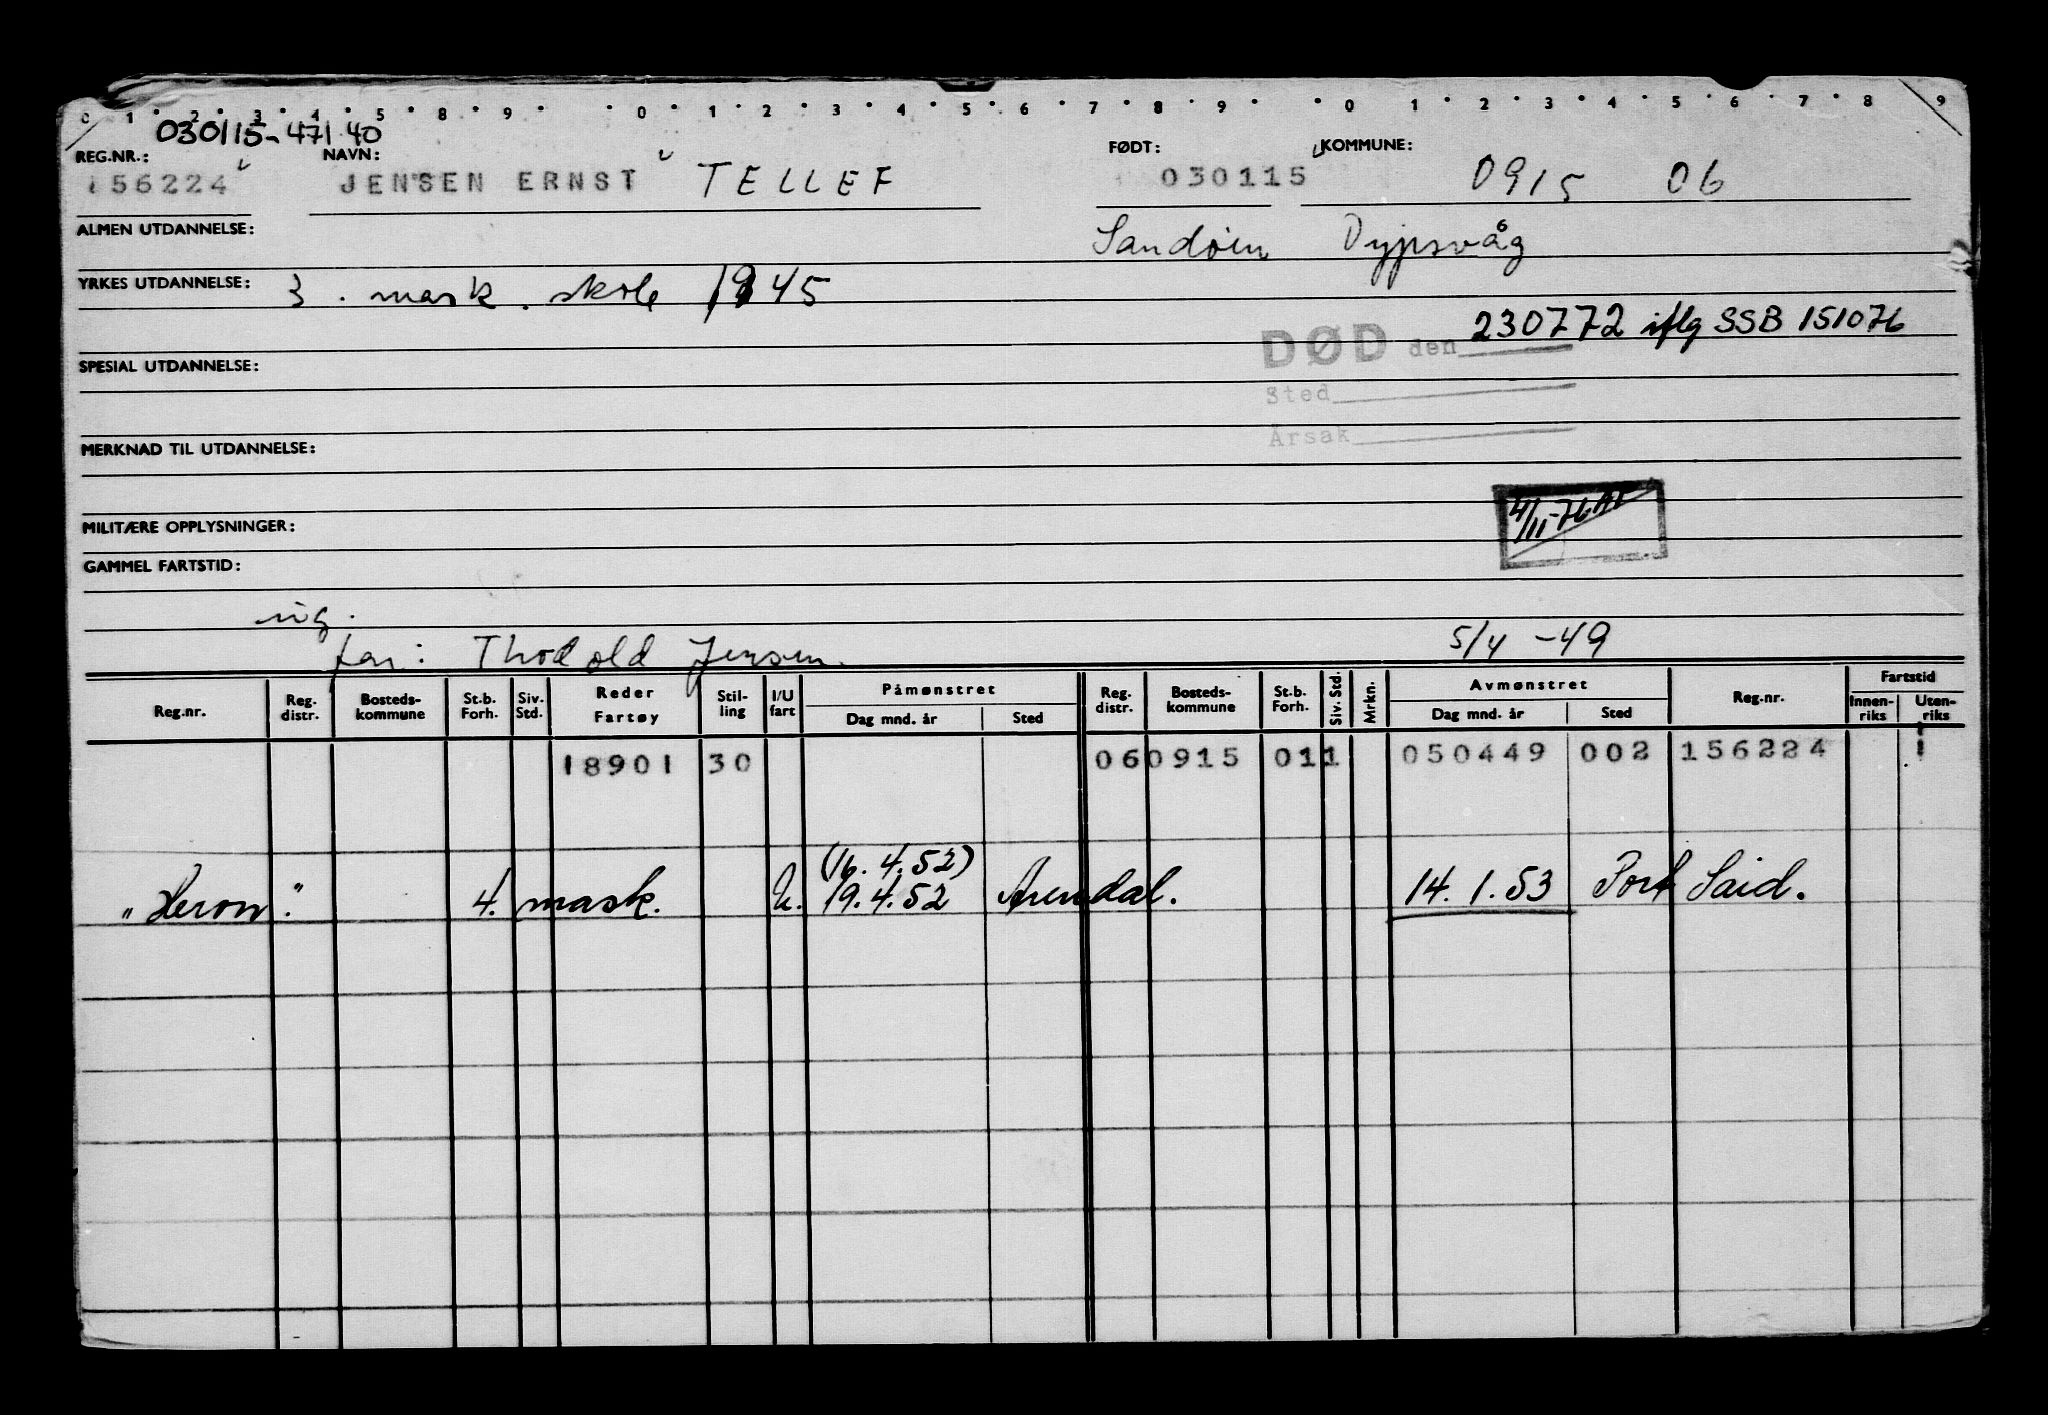 0 1 2 3 4 5 8 9 0 1 2 3 4 5 6 7 8 9 0 1 2 3 4 5 6 7 8 9
030115-47140
REG.NR.: NAVN: FØDT: KOMMUNE:
156224 JENSEN ERNST TELLEF 030115 0915 06
ALMEN UTDANNELSE: Sandøen Dypsvåg
YRKES UTDANNELSE: 3. mask. skole 1945
DØD den 230772 iflg SSB 151076
SPESIAL UTDANNELSE:
Sted
Årsak
MERKNAD TIL UTDANNELSE:
4/11-76
MILITÆRE OPPLYSNINGER:
GAMMEL FARTSTID:
ug.
far: Thodold Jensen. 5/4 -49
Reg.nr. Reg. distr. Bosteds- kommune St.b. Forh. Siv. Std. Reder Fartøy Stil- ling I/U fart Påmønstret Dag mnd. år Sted Reg. distr. Bosteds- kommune St.b. Forh. Siv. Std. Mrkn. Avmønstret Dag mnd. år Sted Reg.nr. Fartstid Innen- riks Uten- riks
18901 30 060915 011 050449 002 156224
(16.4.52)
"Heron". 4. mask. U. 19.4.52 Arendal. 14.1.53 Port Said.